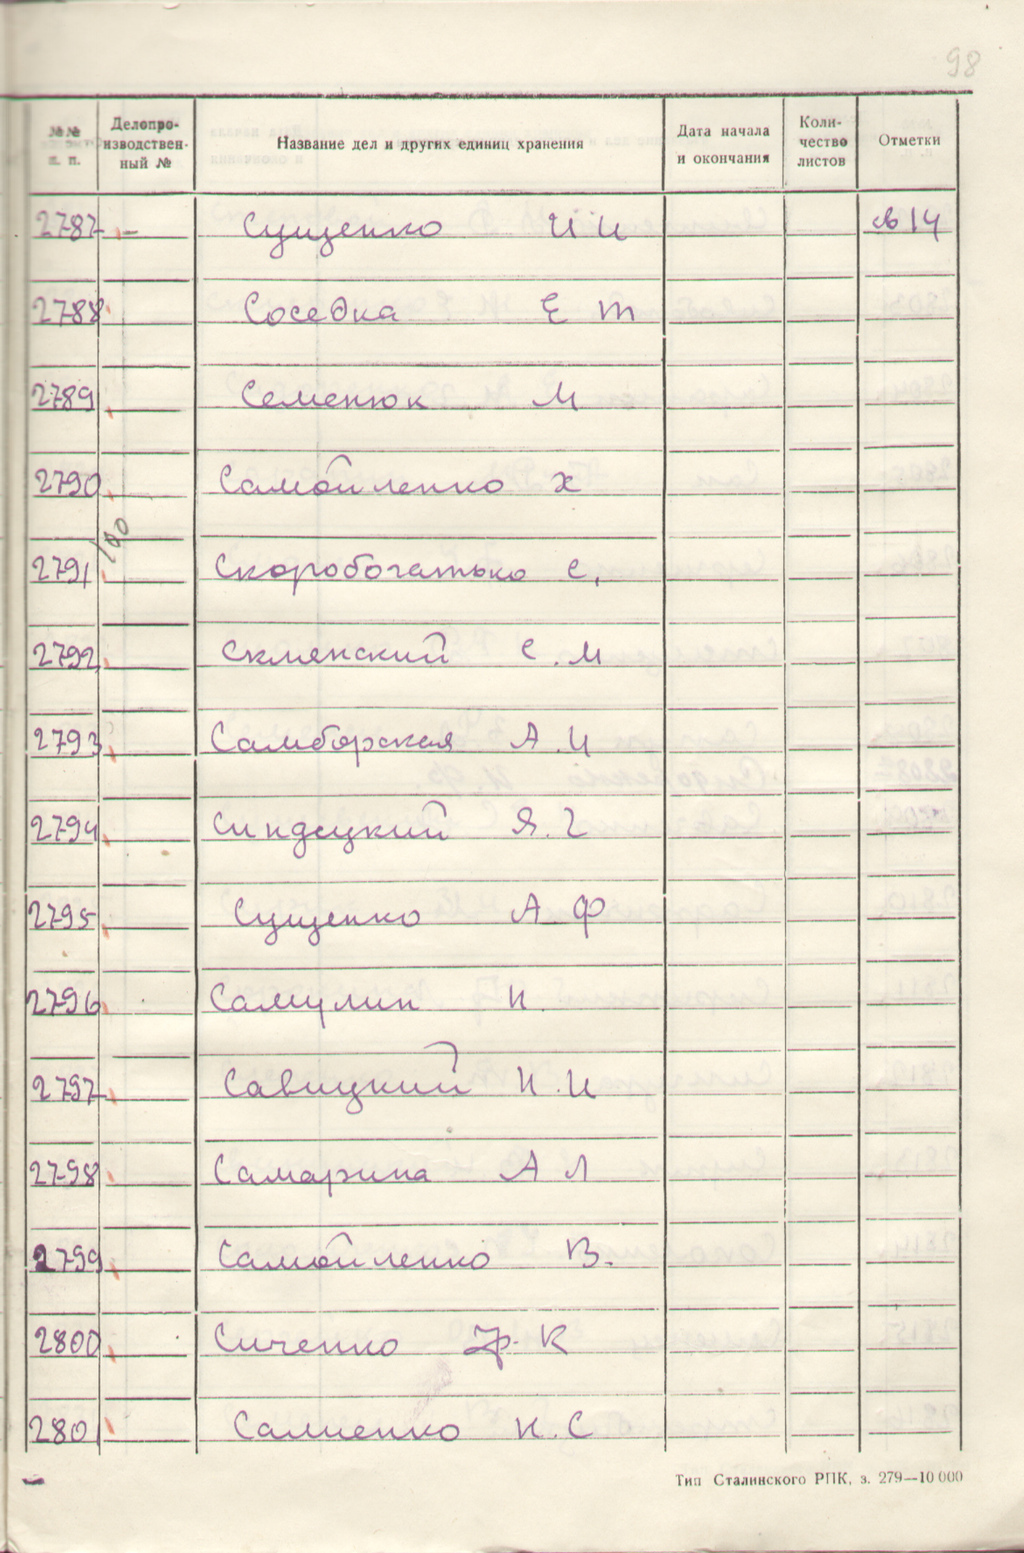 98
№№ п. п. Делопро-изводствен-ный № Название дел и других единиц хранения Дата начала и окончания Коли-чество листов Отметки
2787 - Сущенко И И 14
2788 Соседка Е Т
2789 Семенюк М
2790 Самойленко Х
100
2791 Скоробогатько С.
2792 Склянский С. М
2793 Самборская А. И
2794 Синдецкий Я. Г
2795 Сущенко А Ф
2796 Самулин Н.
2797 Савицкий Н. И
2798 Самарина А Л
2799 Самойленко В.
2800 Сиченко К
2801 Салиенко Н. С
Тип Сталинского РПК, з. 279—10 000